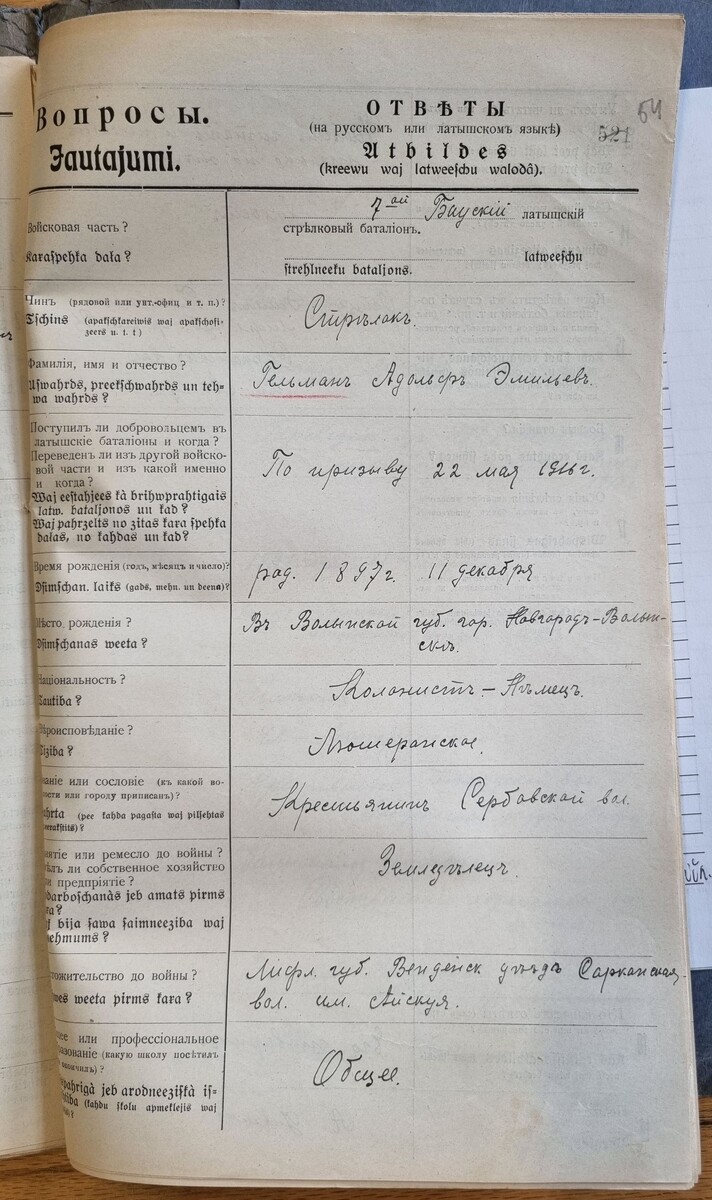 54
521
Вопросы.
Jautajumi.
ОТВѢТЫ
(на русскомъ или латышскомъ языкѣ)
Atbildes
(kreewu waj latweeschu walodâ).
Войсковая часть?
Karaspehka daļa?
7ой Баускій латышскій
стрѣлковый баталіонъ.
latweeschu
strehlneeku bataljons.
Чинъ (рядовой или унт.-офиц и т. п.)?
Tschins (apakschkareiwis waj apakschofi-
zeers u. t. t)
Стрѣлокъ.
Фамилія, имя и отчество?
Uswahrds, preekschwahrds un teh-
wa wahrds?
Гельманъ Адольфъ Эмильевъ.
Поступилъ ли добровольцемъ въ
латышскіе баталіоны и когда?
Переведенъ ли изъ другой войско-
вой части и изъ какой именно
и когда?
Waj eestahjees kà brihwprahtigais
latw. bataljonos un kad?
Waj pahrzelts no zitas kara spehka
daļas, no kahdas un kad?
По призыву 22 мая 1916 г.
Время рожденія (годъ, мѣсяцъ и число)?
Dsimschan. laiks (gads, mehn. un deena)?
род. 1897 г. 11 декабря
Мѣсто, рожденія?
Dsimschanas weeta?
Въ Волынской губ. гор. Новгородъ-Волын-
скъ.
Національность?
Tautiba?
Колонистъ – Нѣмецъ.
вѣроисповѣданіе?
Tiziba?
Лютеранское.
ваніе или сословіе (къ какой во-
лости или городу приписанъ)?
ahrta (pee kahda pagasta waj pilsehtas
peerakstits)?
Крестьянинъ Сербовской вол.
нятіе или ремесло до войны?
ѣлъ ли собственное хозяйство
ли предпріятіе?
darboschanàs jeb amats pirms
kara?
bija sawa saimneeziba waj
ņehmums?
Земледѣлецъ.
ожительство до войны?
wes weeta pirms kara?
Лифл. губ. Венденск. уѣздъ Сарканская
вол. им. Айскуя.
щее или профессіональное
разованіе (какую школу посѣтилъ
окончилъ)?
pahrigà jeb arodneeziskà is-
tiba (kahdu skolu apmeklejis waj
Общее.